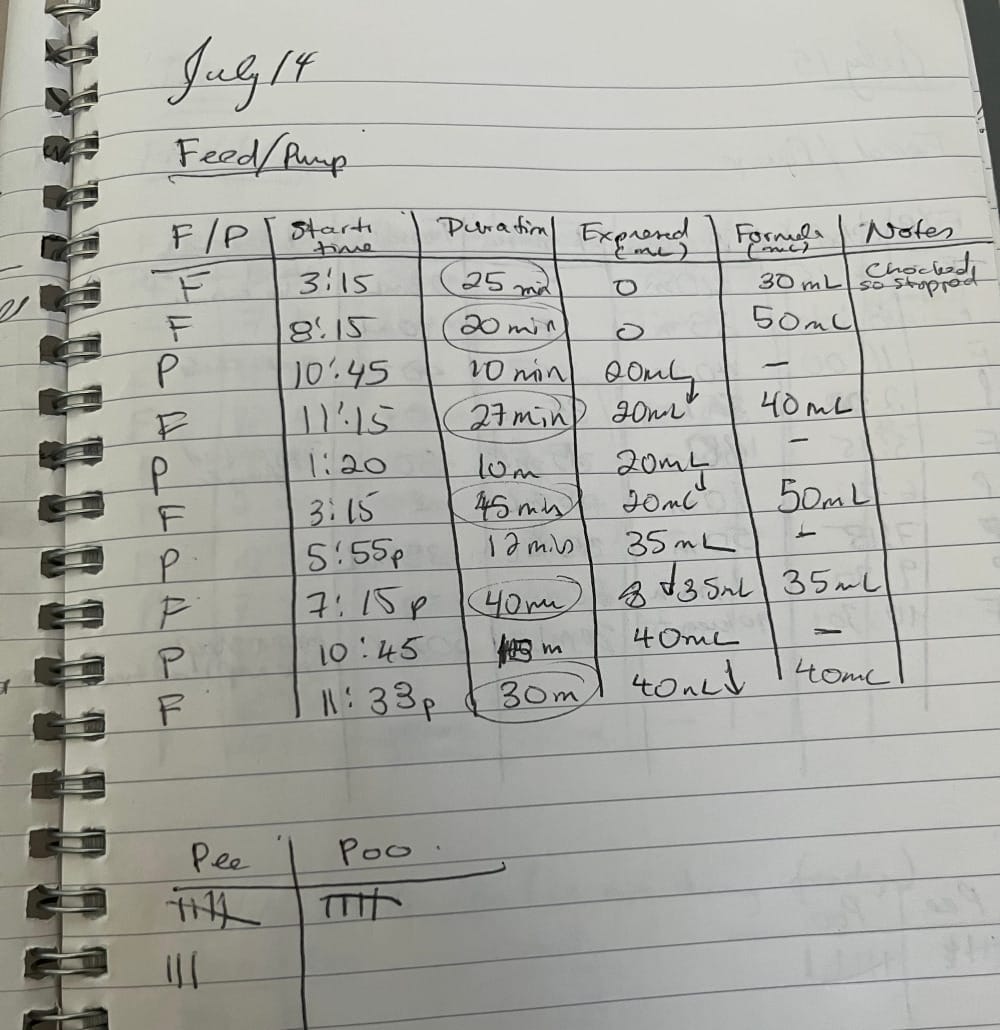 July 14
Feed/Pump
F/P Start time Duration Expressed (mL) Formula (mL) Notes
F 3:15 25 min 0 30 mL Chocked, so stopped
F 8:15 20 min 0 50mL
P 10:45 10 min 20mL –
F 11:15 27 min 20mL↓ 40 mL
P 1:20 10m 20mL –
F 3:15 45 min 20mL↓ 50mL
P 5:55p 12 mins 35 mL –
F 7:15p 40min ↓35mL 35mL
P 10:45 m 40mL –
F 11:33p 30m 40mL↓ 40mL
Pee Poo